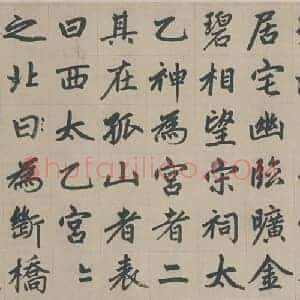 居宅幽臨曠金
碧相望宗祠太
乙神為宮者二
其在孤山者表
曰西太乙宮〻
之北曰為斷橋